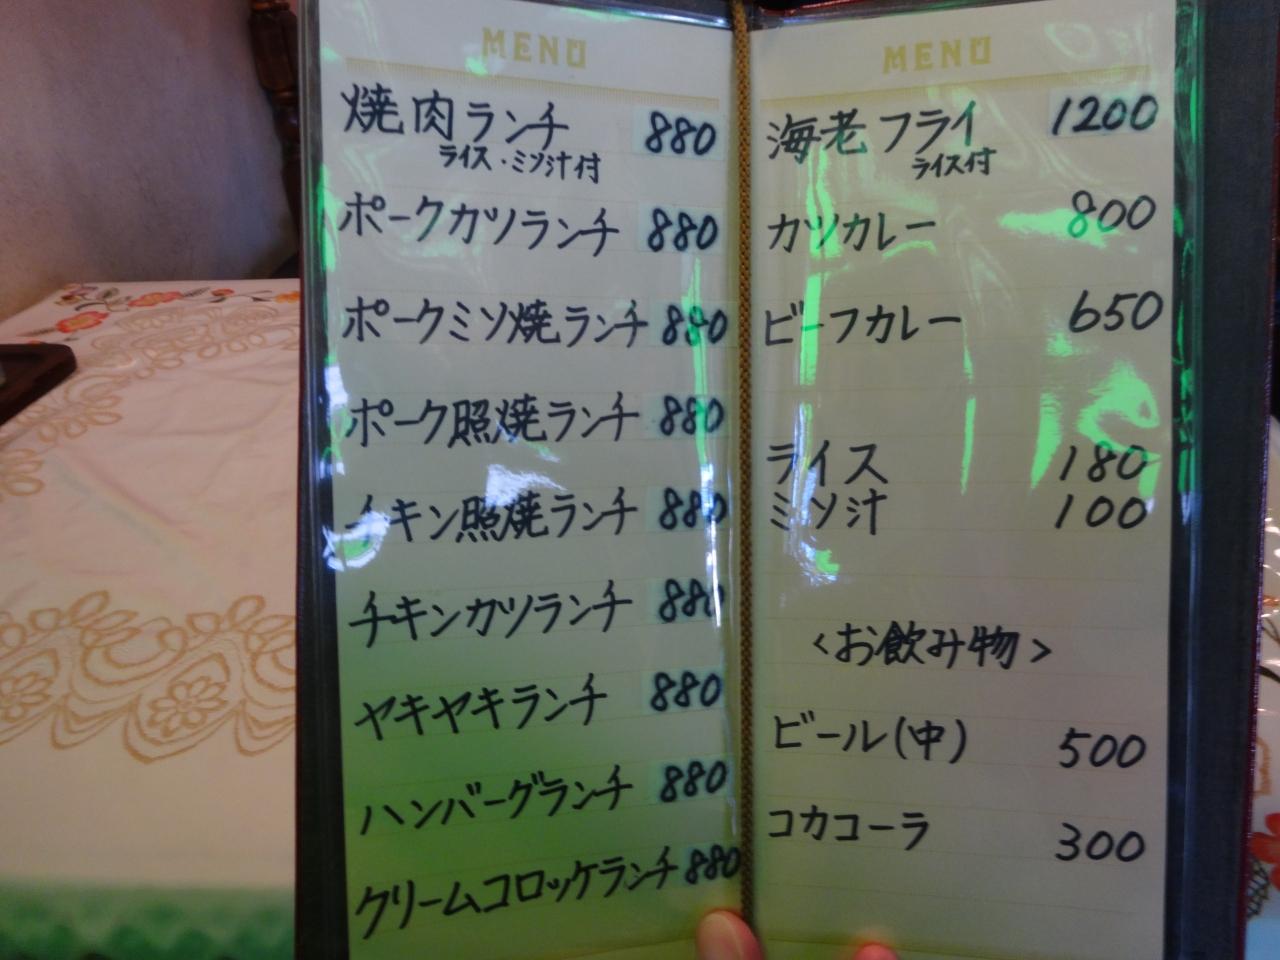 MENU
焼肉ランチ 880
ライス・ミソ汁付
ポークカツランチ 880
ポークミソ焼ランチ 880
ポーク照焼ランチ 880
チキン照焼ランチ 880
チキンカツランチ 880
ヤキヤキランチ 880
ハンバーグランチ 880
クリームコロッケランチ 880
MENU
海老フライ 1200
ライス付
カツカレー 800
ビーフカレー 650
ライス 180
ミソ汁 100
<お飲み物>
ビール(中) 500
コカコーラ 300